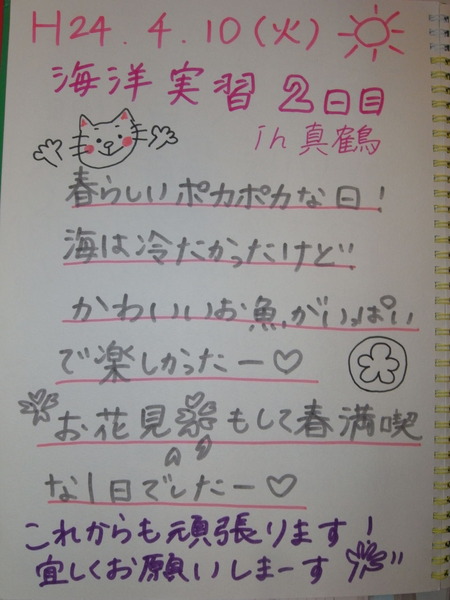 H24.4.10(火)
海洋実習 2日目
in 真鶴
春らしいポカポカな日!
海は冷たかったけど
かわいいお魚がいっぱい
で楽しかったー♡
お花見もして春満喫
な1日でしたー♡
これからも頑張ります!
宜しくお願いしまーす